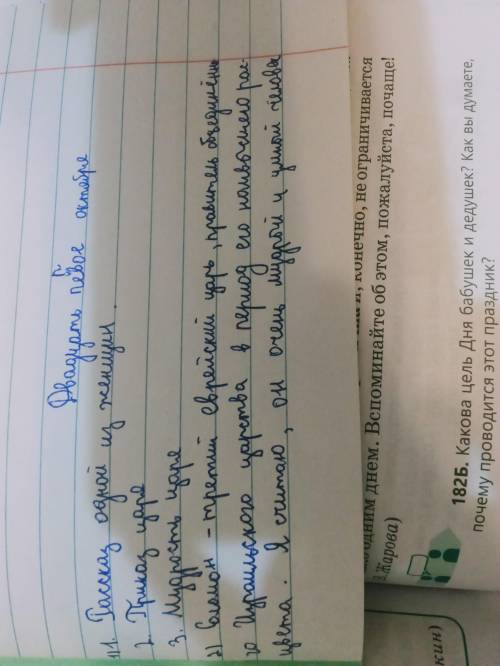 Двадцать первое октября
1) 1. Рассказ одной из женщин.
2. Приказ царя
3. Мудрость царя
2) Соломон - третий еврейский царь, правитель объединённо
го Израильского царства в период его наивысшего рас-
цвета. Я считаю, он очень мудрый и умный человек
конечно, не ограничивается
одним днем. Вспоминайте об этом, пожалуйста, почаще!
Жарова)
182Б. Какова цель Дня бабушек и дедушек? Как вы думаете,
почему проводится этот праздник?
кин)